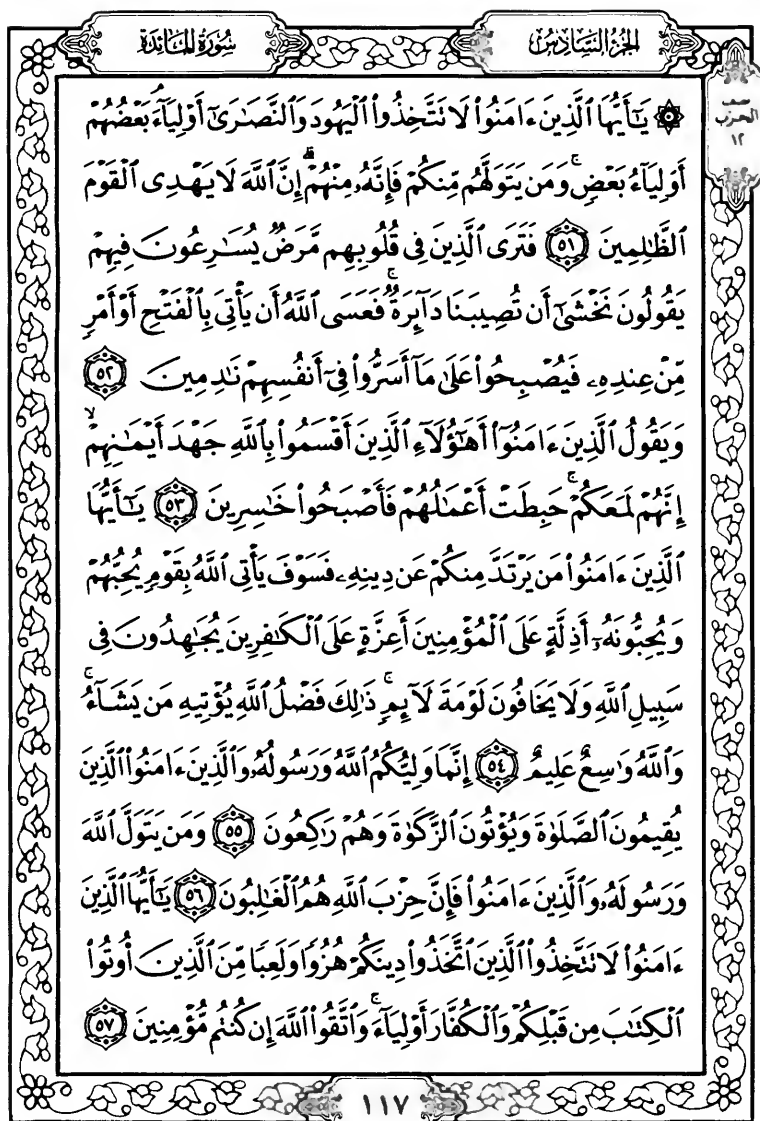 الجزء السادس
سورة المائدة
نصف
الحزب
١٢
۞ يَٰٓأَيُّهَا ٱلَّذِينَ ءَامَنُوا۟ لَا تَتَّخِذُوا۟ ٱلْيَهُودَ وَٱلنَّصَٰرَىٰٓ أَوْلِيَآءَۘ بَعْضُهُمْ
أَوْلِيَآءُ بَعْضٍۚ وَمَن يَتَوَلَّهُم مِّنكُمْ فَإِنَّهُۥ مِنْهُمْۗ إِنَّ ٱللَّهَ لَا يَهْدِى ٱلْقَوْمَ
ٱلظَّٰلِمِينَ ٥١ فَتَرَى ٱلَّذِينَ فِى قُلُوبِهِم مَّرَضٌ يُسَٰرِعُونَ فِيهِمْ
يَقُولُونَ نَخْشَىٰٓ أَن تُصِيبَنَا دَآئِرَةٌۚ فَعَسَى ٱللَّهُ أَن يَأْتِىَ بِٱلْفَتْحِ أَوْ أَمْرٍ
مِّنْ عِندِهِۦ فَيُصْبِحُوا۟ عَلَىٰ مَآ أَسَرُّوا۟ فِىٓ أَنفُسِهِمْ نَٰدِمِينَ ٥٢
وَيَقُولُ ٱلَّذِينَ ءَامَنُوٓا۟ أَهَٰٓؤُلَآءِ ٱلَّذِينَ أَقْسَمُوا۟ بِٱللَّهِ جَهْدَ أَيْمَٰنِهِمْۙ
إِنَّهُمْ لَمَعَكُمْۚ حَبِطَتْ أَعْمَٰلُهُمْ فَأَصْبَحُوا۟ خَٰسِرِينَ ٥٣ يَٰٓأَيُّهَا
ٱلَّذِينَ ءَامَنُوا۟ مَن يَرْتَدَّ مِنكُمْ عَن دِينِهِۦ فَسَوْفَ يَأْتِى ٱللَّهُ بِقَوْمٍ يُحِبُّهُمْ
وَيُحِبُّونَهُۥٓ أَذِلَّةٍ عَلَى ٱلْمُؤْمِنِينَ أَعِزَّةٍ عَلَى ٱلْكَٰفِرِينَ يُجَٰهِدُونَ فِى
سَبِيلِ ٱللَّهِ وَلَا يَخَافُونَ لَوْمَةَ لَآئِمٍۚ ذَٰلِكَ فَضْلُ ٱللَّهِ يُؤْتِيهِ مَن يَشَآءُۚ
وَٱللَّهُ وَٰسِعٌ عَلِيمٌ ٥٤ إِنَّمَا وَلِيُّكُمُ ٱللَّهُ وَرَسُولُهُۥ وَٱلَّذِينَ ءَامَنُوا۟ ٱلَّذِينَ
يُقِيمُونَ ٱلصَّلَوٰةَ وَيُؤْتُونَ ٱلزَّكَوٰةَ وَهُمْ رَٰكِعُونَ ٥٥ وَمَن يَتَوَلَّ ٱللَّهَ
وَرَسُولَهُۥ وَٱلَّذِينَ ءَامَنُوا۟ فَإِنَّ حِزْبَ ٱللَّهِ هُمُ ٱلْغَٰلِبُونَ ٥٦ يَٰٓأَيُّهَا ٱلَّذِينَ
ءَامَنُوا۟ لَا تَتَّخِذُوا۟ ٱلَّذِينَ ٱتَّخَذُوا۟ دِينَكُمْ هُزُوًا وَلَعِبًا مِّنَ ٱلَّذِينَ أُوتُوا۟
ٱلْكِتَٰبَ مِن قَبْلِكُمْ وَٱلْكُفَّارَ أَوْلِيَآءَۚ وَٱتَّقُوا۟ ٱللَّهَ إِن كُنتُم مُّؤْمِنِينَ ٥٧
١١٧